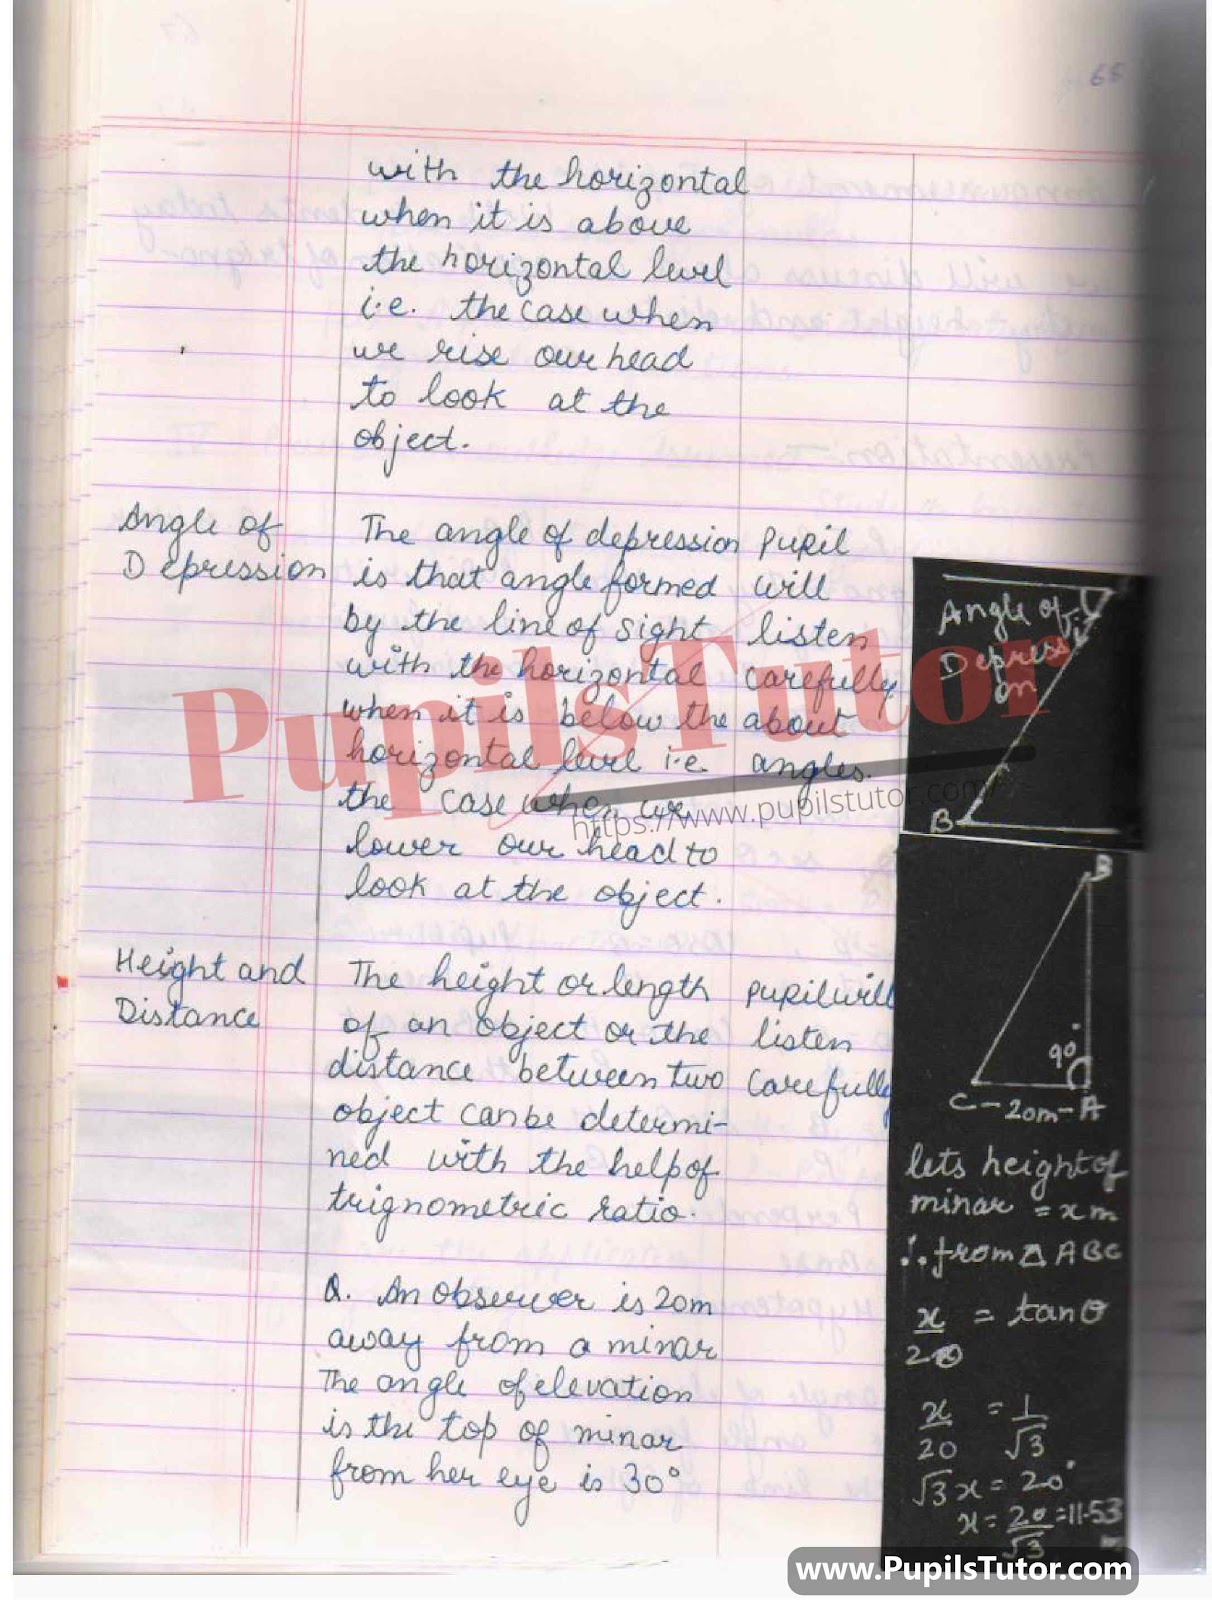 68
with the horizontal
when it is above
the horizontal level
i.e. the case when
we rise our head
to look at the
object.
Angle of
Depression
The angle of depression
is that angle formed
by the line of sight
with the horizontal
when it is below the
horizontal level i.e
the case when we
lower our head to
look at the object.
Pupil
will
listen
carefully
about
angles.
Angle of
Depress
on
B
Height and
Distance
The height or length
of an object or the
distance between two
object can be determi-
ned with the help of
trignometric ratio.
pupil will
listen
carefully
Q. An observer is 20m
away from a minar
The angle of elevation
is the top of minar
from her eye is 30°
B
90°
C - 20m - A
lets height of
minar = x m
∴ from △ ABC
x/20 = tan θ
x/20 = 1/√3
√3 x = 20
x = 20/√3 = 11.53
Pupils Tutor
https://www.pupilstutor.com/
www.PupilsTutor.com